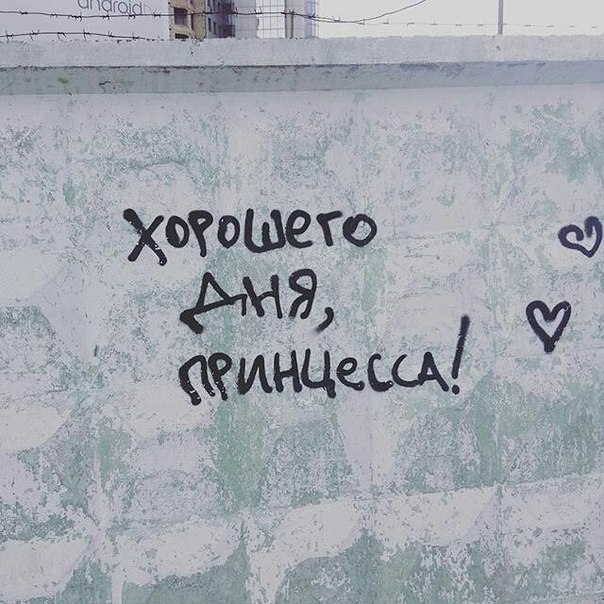 androidtv
хорошего
дня,
принцесса!